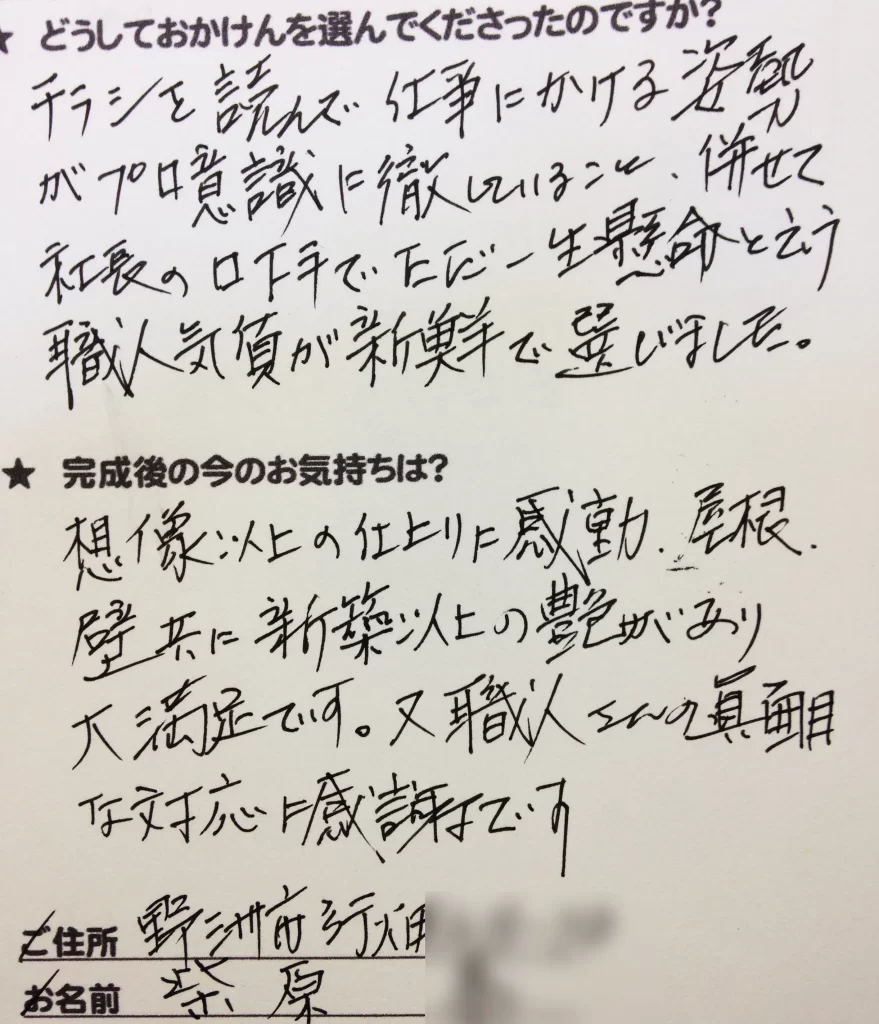 ★ どうしておかけんを選んでくださったのですか?
チラシを読んで 仕事にかける姿勢
がプロ意識に徹していること、併せて
社長の口下手でただ一生懸命と云う
職人気質が新鮮で選びました。
★ 完成後の今のお気持ちは?
想像以上の仕上りに感動、屋根、
壁共に新築以上の艶があり
大満足です。又職人さんの真面目
な対応に感謝です
ご住所 野洲市行畑
お名前 柴原